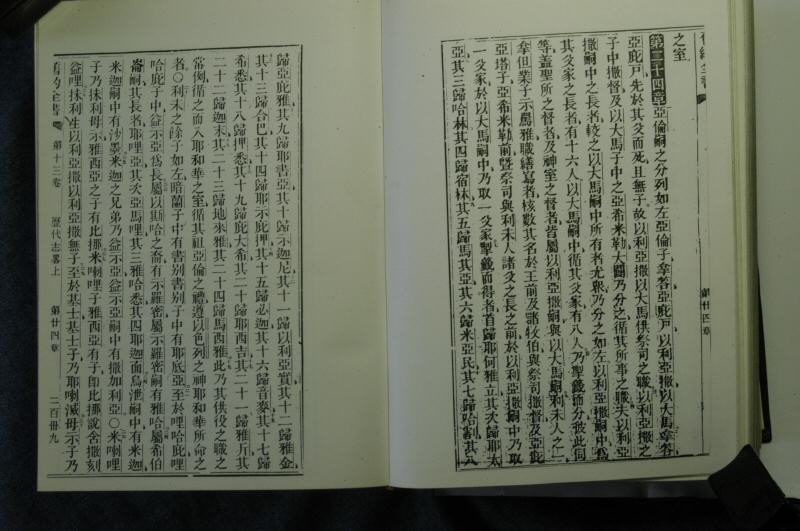 舊約全書
第廿四章
之室
第二十四章 亞倫嗣之分列如左亞倫子拿答亞庇戶以利亞撒以大馬拿答
亞庇戶先於其父而死且無子故以利亞撒以大馬供祭司之職以利亞撒之
子中撒督及以大馬子中之亞希米勒大闢乃分之循其所事之職夫以利亞
撒嗣中之長者較之以大馬嗣中所有者尤衆乃分之如左以利亞撒嗣中為
其父家之長者有十六人以大馬嗣中循其父家有八人乃掣籤而分彼此同
等蓋聖所之督者及神室之督者皆屬以利亞撒嗣與以大馬嗣利未人之一
拿但業子示馬雅職繕寫者核數其名於王前及諸牧伯與祭司撒督及亞庇
亞塔子亞希米勒前曁祭司與利未人諸父之長之前於以利亞撒嗣中乃取
一父家於以大馬嗣中乃取一父家掣籤而得者首歸耶何雅立其次歸耶大
亞其三歸哈林其四歸宿林其五歸馬其亞其六歸米亞民其七歸哈割其八
歸亞庇雅其九歸耶書亞其十歸示迦尼其十一歸以利亞實其十二歸雅金
其十三歸合巴其十四歸耶示庇押其十五歸必迦其十六歸音麥其十七歸
希悉其十八歸押悉其十九歸庇大希其二十歸耶西吉其二十一歸雅斤其
二十二歸迦末其二十三歸地來雅其二十四歸馬西雅此乃其供役之職之
常例循之而入耶和華之室循其祖亞倫之禮遵以色列之神耶和華所命之
者○利未之餘子如左暗蘭子中有書別書別子中有耶底亞至於哩哈庇哩
哈庇子中益示亞為長屬以斯哈之裔有示羅密屬示羅密嗣有雅哈屬希伯
崙嗣其長者耶哩亞其次亞馬哩其三雅哈悉其四耶迦面烏泄嗣中有米迦
米迦嗣中有沙墨米迦之兄弟乃益示亞益示亞嗣中有撒加利亞○米喇哩
子乃抹利母示雅西亞之子有比挪米喇哩子雅西亞有子卽比挪說舍撒刻
益哩抹利生以利亞撒以利亞撒無子至於基士基士子乃耶喇滅母示子乃
舊約全書
第十三卷
歷代志畧上
第廿四章
二百卅九